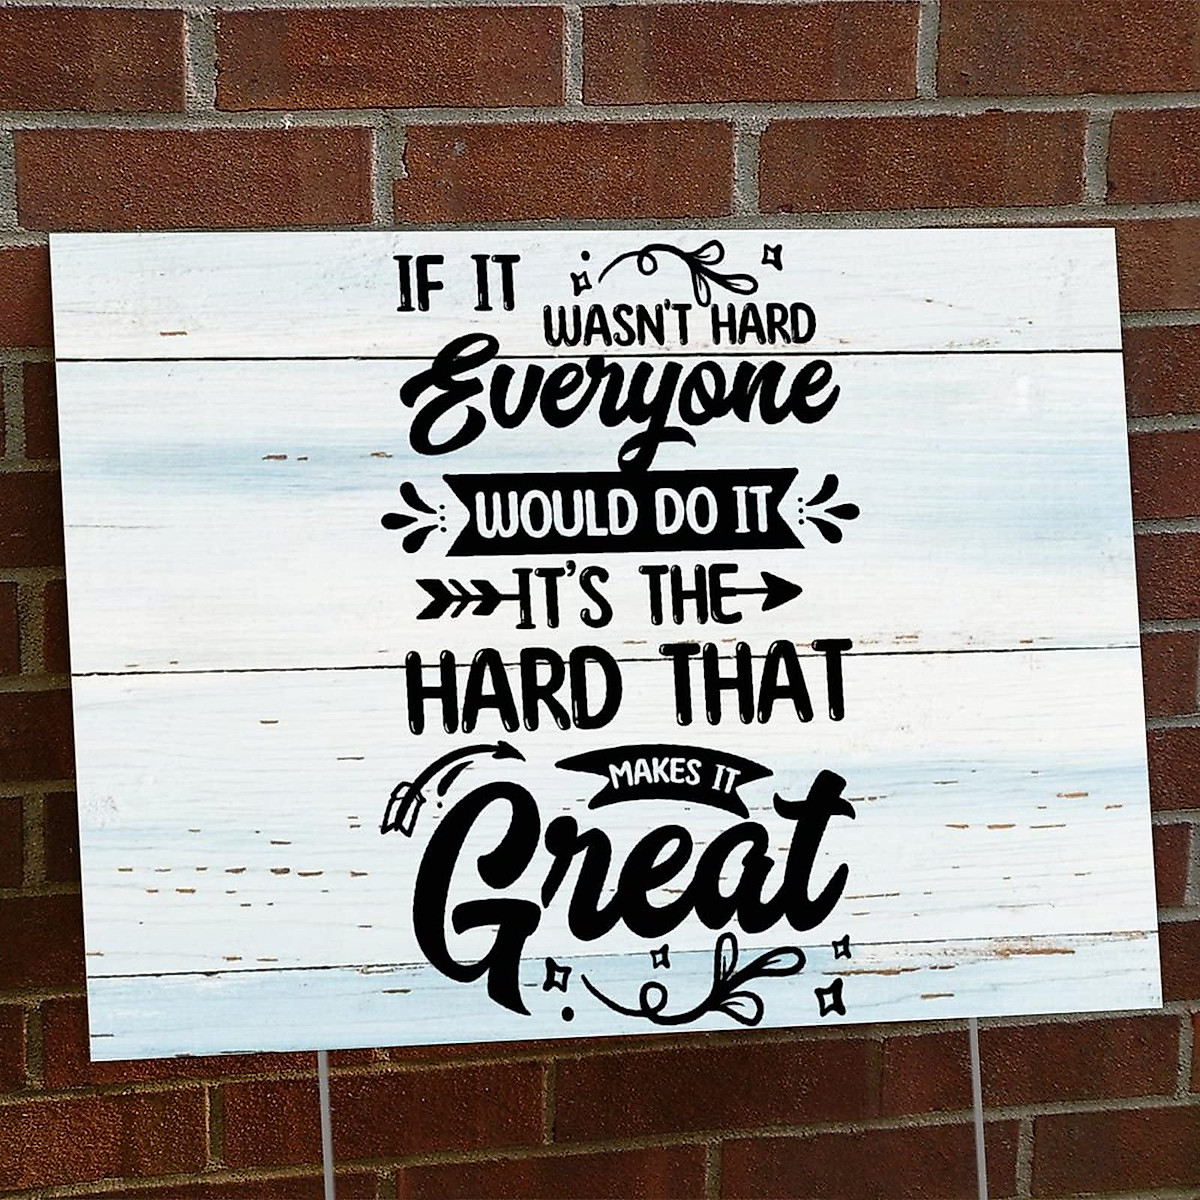 IF IT
WASN'T HARD
Everyone
WOULD DO IT
IT'S THE
HARD THAT
MAKES IT
Great